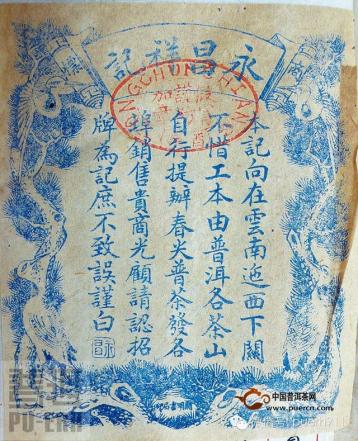 永昌祥記
商
YONGCHUNGHSIANG
本記向在雲南迤西下關
不惜工本由普洱各茶山
自行提辦春尖普茶發各
埠銷售貴商光顧請認招
牌為記庶不致誤謹白
PU-ERH
中国普洱茶网
www.puercn.com